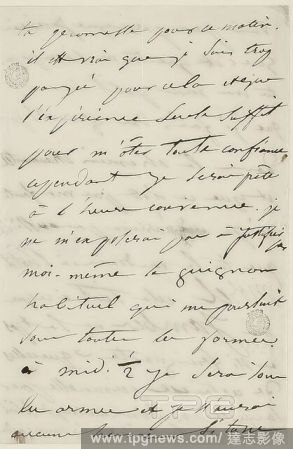 ta promesse pour ce matin.
il est vrai que je suis trop
payée pour cela et que
l'expérience seule suffit
pour m'ôter toute confiance
cependant je serai prête
à l'heure convenue. je
ne m'exposerai pas à justifier par
moi-même le guignon
habituel qui me poursuit
sous toutes les formes.
à midi ½ je serai sous
les armes et je n'aurai
aucune
TPG
www.tpgnews.com / 達志影像